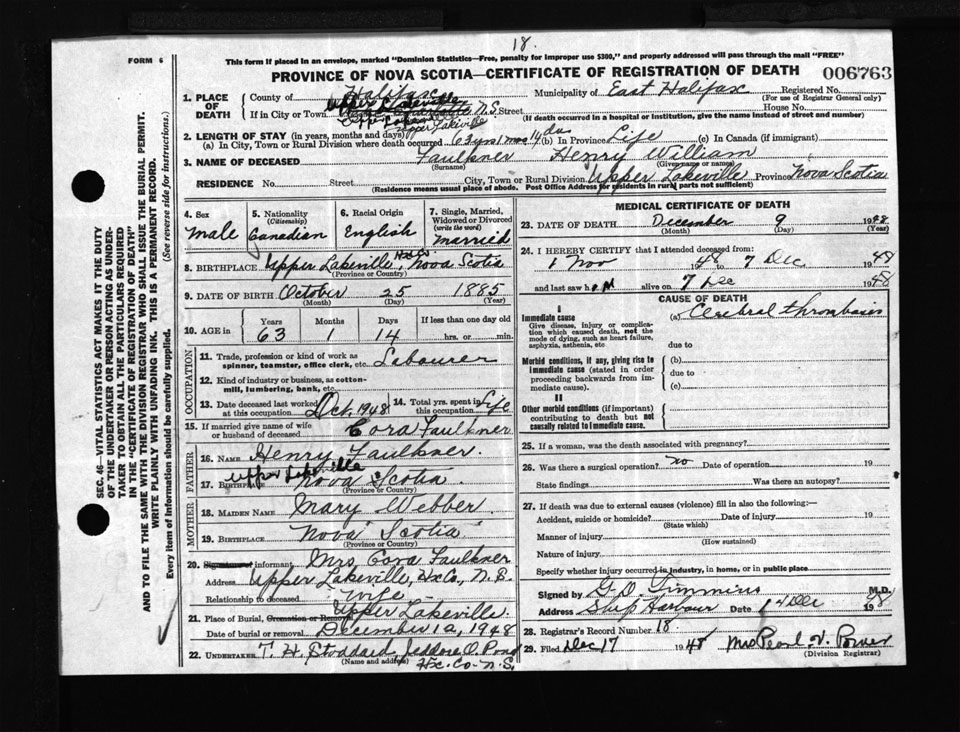 18.
FORM 6
This form if placed in an envelope, marked "Dominion Statistics—Free, penalty for improper use $300," and properly addressed will pass through the mail "FREE"
PROVINCE OF NOVA SCOTIA—CERTIFICATE OF REGISTRATION OF DEATH 006763
1. PLACE OF DEATH
County of Halifax Municipality of East Halifax Registered No.
(For use of Registrar General only)
Upper Lakeville
If in City or Town N.S. Street House No.
(If death occurred in a hospital or institution, give the name instead of street and number)
Upper Lakeville
2. LENGTH OF STAY (in years, months and days)
(a) In City, Town or Rural Division where death occurred 63 yrs 1 mo 14 da (b) In Province Life (c) In Canada (if immigrant)
3. NAME OF DECEASED Faulkner Henry William
(Surname) (Given name or names)
RESIDENCE No. Street City, Town or Rural Division Upper Lakeville Province Nova Scotia
(Residence means usual place of abode. Post Office Address for residents in rural parts not sufficient)
4. Sex Male
5. Nationality (Citizenship) Canadian
6. Racial Origin English
7. Single, Married, Widowed or Divorced (write the word) Married
8. BIRTHPLACE Upper Lakeville, Hx Co Nova Scotia
(Province or Country)
9. DATE OF BIRTH October 25 1885
(Month) (Day) (Year)
10. AGE in Years Months Days If less than one day old
63 1 14 hrs. or min.
OCCUPATION
11. Trade, profession or kind of work as spinner, teamster, office clerk, etc. Labourer
12. Kind of industry or business, as cotton-mill, lumbering, bank, etc.
13. Date deceased last worked at this occupation Oct. 1948
14. Total yrs. spent in this occupation Life
15. If married give name of wife or husband of deceased Cora Faulkner
FATHER
16. NAME Henry Faulkner.
Upper Lakeville
17. BIRTHPLACE Nova Scotia
(Province or Country)
MOTHER
18. MAIDEN NAME Mary Webber
19. BIRTHPLACE Nova Scotia
(Province or Country)
20. Signature of informant Mrs Cora Faulkner
Address Upper Lakeville, Hx Co., N.S.
Relationship to deceased - Wife -
21. Place of Burial, Cremation or Removal Upper Lakeville.
Date of burial or removal December 12, 1948
22. UNDERTAKER T. H. Stoddard, Jeddore O. Pond
(Name and address) Hx. Co. N.S.
MEDICAL CERTIFICATE OF DEATH
23. DATE OF DEATH December 9 1948
(Month) (Day) (Year)
24. I HEREBY CERTIFY that I attended deceased from:
1 Nov 1948 to 7 Dec 1948
and last saw him alive on 7 Dec 1948
CAUSE OF DEATH
I
Immediate cause
Give disease, injury or complication which caused death, not the mode of dying, such as heart failure, asphyxia, asthenia, etc.
(a) Cerebral thrombosis
due to
Morbid conditions, if any, giving rise to immediate cause (stated in order proceeding backwards from immediate cause).
(b)
due to
(c)
II
Other morbid conditions (if important) contributing to death but not causally related to immediate cause.
25. If a woman, was the death associated with pregnancy?
26. Was there a surgical operation? no Date of operation 19
State findings Was there an autopsy?
27. If death was due to external causes (violence) fill in also the following:—
Accident, suicide or homicide? Date of injury 19
(State which)
Manner of injury
(How sustained)
Nature of injury
Specify whether injury occurred in industry, in home, or in public place
Signed by G. D. Timmins M.D.
Address Ship Harbour Date 14 Dec 1948
28. Registrar's Record Number 18.
29. Filed Dec 17 1948 Mrs Pearl V. Power
(Division Registrar)
SEC. 46—VITAL STATISTICS ACT MAKES IT THE DUTY
OF THE UNDERTAKER OR PERSON ACTING AS UNDER-
TAKER TO OBTAIN ALL THE PARTICULARS REQUIRED
IN THE "CERTIFICATE OF REGISTRATION OF DEATH"
AND TO FILE THE SAME WITH THE DIVISION REGISTRAR WHO SHALL ISSUE THE BURIAL PERMIT.
WRITE PLAINLY WITH UNFADING INK. THIS IS A PERMANENT RECORD.
Every item of Information should be carefully supplied. (See reverse side for instructions.)